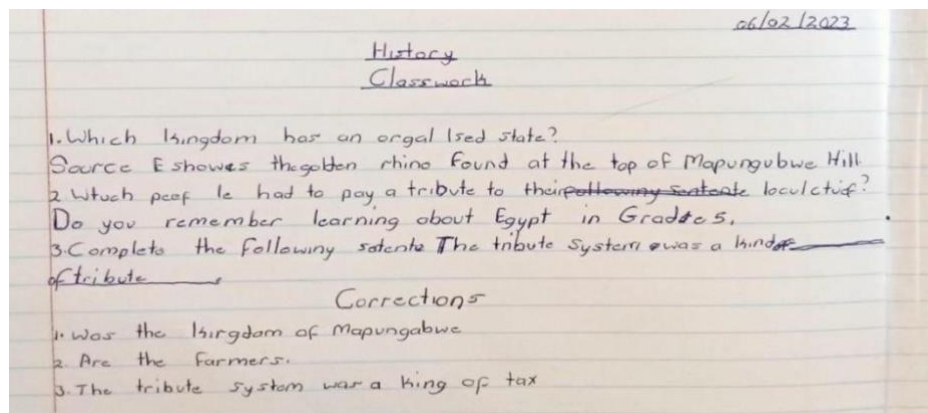 06/02/2023
History
Classwork
1. Which kingdom has an orgal Ised state?
Source E showes the golden rhino found at the top of Mapungubwe Hill
2 Wtuch peef le had to pay a tribute to their loculctuif?
Do you remember learning about Egypt in Gradte 5.
3. Complete the followiny satente The tribute system was a kind
of tribute
Corrections
1. Was the kirgdom of Mapungabwe
2. Are the farmers.
3. The tribute system was a king of tax